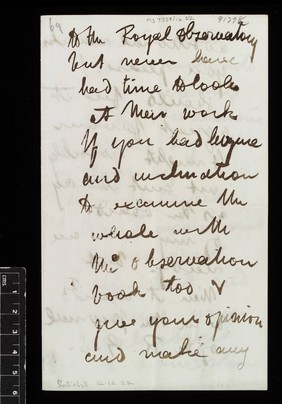 to the Royal observatory
but never have
had time to look
at their work
If you had leisure
and inclination
to examine the
whole with
the observation
book too &
give your opinion
and make any